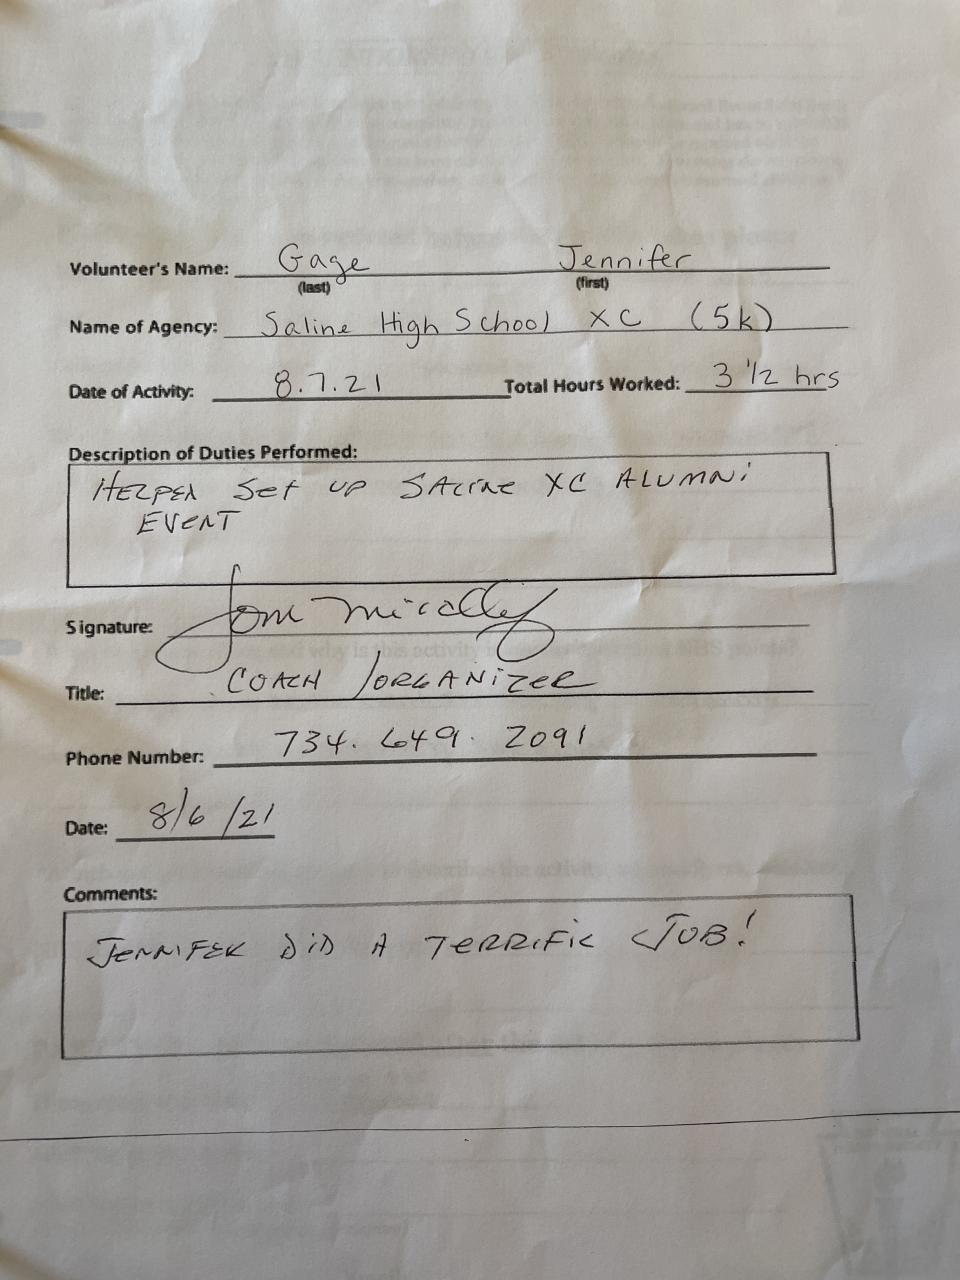 Volunteer's Name: Gage Jennifer
(last) (first)
Name of Agency: Saline High School XC (5k)
Date of Activity: 8.7.21 Total Hours Worked: 3 1/2 hrs
Description of Duties Performed:
HELPED SET UP SALINE XC ALUMNi
EVENT
Signature:
Title: COACH / ORGANIZER
Phone Number: 734. 649. 2091
Date: 8/6/21
Comments:
JENNIFER DID A TERRIFIC JOB!